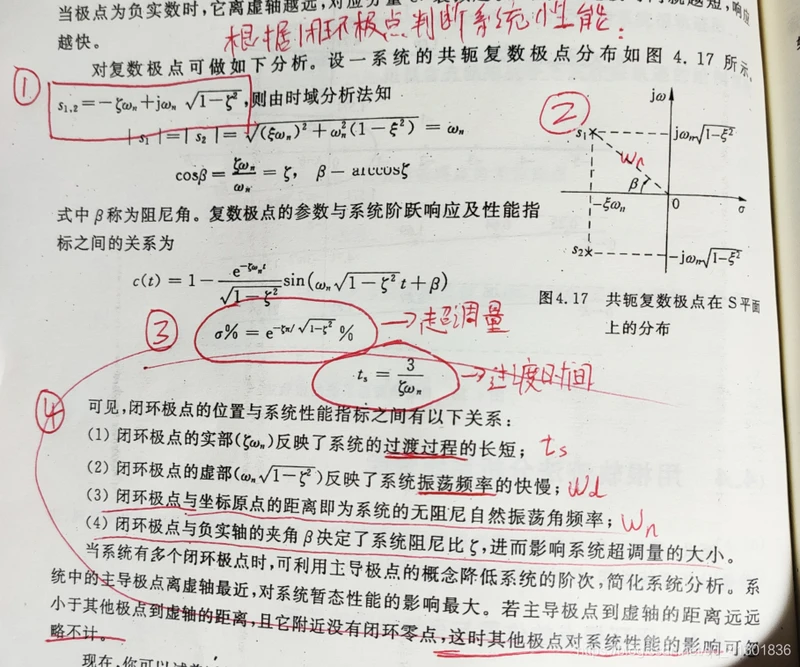 当极点为负实数时,它离虚轴越远,对应分量
越快。
根据闭环极点判断系统性能:
对复数极点可做如下分析。设一系统的共轭复数极点分布如图 4.17 所示,
①
s₁,₂=-ζωₙ+jωₙ√1-ζ²,则由时域分析法知
|s₁|=|s₂|=√(ξωₙ)²+ωₙ²(1-ξ²)=ωₙ
cosβ=ζωₙ/ωₙ=ζ, β-arccosζ
式中 β 称为阻尼角。复数极点的参数与系统阶跃响应及性能指
标之间的关系为
c(t)=1-e^{-ζωₙt}/√1-ζ² sin(ωₙ√1-ζ² t+β)
②
jω
s₁
jωₙ√1-ξ²
ωₙ
β
-ξωₙ
0
σ
s₂
-jωₙ√1-ξ²
图4.17 共轭复数极点在 S 平面
上的分布
③
σ%=e^{-ζπ/√1-ζ²}% →超调量
tₛ=3/ζωₙ →过渡时间
④
可见,闭环极点的位置与系统性能指标之间有以下关系:
(1) 闭环极点的实部(ζωₙ)反映了系统的过渡过程的长短; ts
(2) 闭环极点的虚部(ωₙ√1-ζ²)反映了系统振荡频率的快慢; ωd
(3) 闭环极点与坐标原点的距离即为系统的无阻尼自然振荡角频率; ωn
(4) 闭环极点与负实轴的夹角 β 决定了系统阻尼比 ζ,进而影响系统超调量的大小。
当系统有多个闭环极点时,可利用主导极点的概念降低系统的阶次,简化系统分析。系
统中的主导极点离虚轴最近,对系统暂态性能的影响最大。若主导极点到虚轴的距离远远
小于其他极点到虚轴的距离,且它附近没有闭环零点,这时其他极点对系统性能的影响可忽
略不计。
现在,你可以试着
301836